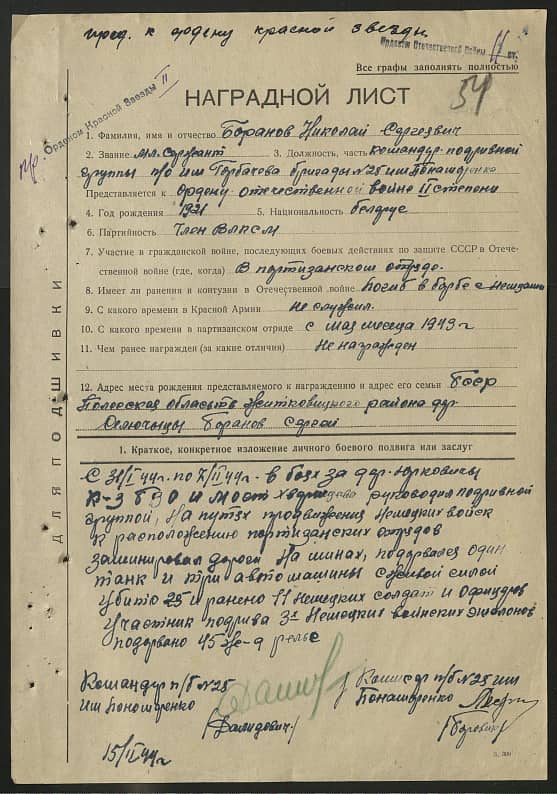 пред. к ордену красной звезды
Орденом Отечественной Войны II ст.
Все графы заполнять полностью
54
Орденом Красной Звезды
НАГРАДНОЙ ЛИСТ
1. Фамилия, имя и отчество Боранов Николай Сергеевич
2. Звание мл. Сержант 3. Должность, часть командир подривной
группы п/о им Горбачова бригады №25 им Понамаренко
Представляется к Ордену отечественной войне II степени
4. Год рождения 1921 5. Национальность беларус
6. Партийность Член ВЛКСМ
7. Участие в гражданской войне, последующих боевых действиях по защите СССР в Отече-
ственной войне (где, когда) В партизанском отрядо.
8. Имеет ли ранения и контузии в Отечественной войне Погиб в борбе с немцами
9. С какого времени в Красной Армии не служил.
10. С какого времени в партизанском отриде с мая месеца 1943 г
11. Чем ранее награжден (за какие отличия) Не награжден
12. Адрес места рождения представляемого к награждению и адрес его семьи Бсср
Полесская область Житковицкого района дер.
Боранов Сергей
1. Краткое, конкретное изложение личного боевого подвига или заслуг
С 31/I 44 г. по 7/II 44 г. в боях за дер. Юрковичы
и мост руководил подривной
группой, На путях продвижения Немецких войск
к расположению партизанских отрядов
заминировал дороги На минах, подорвался один
танк и три автомашины с живой силой
Убито 25 и ранено 11 Немецких солдат и Офицеров
Участник подрива 3х Немецких воинских эшалонов
подорвано 45 же-д рельс
Командир п/б №25
им Пономаренко
(Далидович)
Комисар п/б №25 им
Понамаренко
(Боровик)
15/II 44 г.
ДЛЯ ПОДШИВКИ